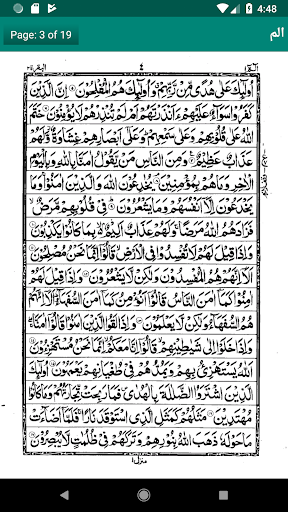 4:48
Page: 3 of 19 الم
البقرة ٢ ٤ الٓمّٓ ١
أُولٰٓئِكَ عَلٰى هُدًى مِّنْ رَّبِّهِمْ وَأُولٰٓئِكَ هُمُ الْمُفْلِحُوْنَ ۝ اِنَّ الَّذِيْنَ
كَفَرُوْا سَوَآءٌ عَلَيْهِمْ ءَاَنْذَرْتَهُمْ اَمْ لَمْ تُنْذِرْهُمْ لَا يُؤْمِنُوْنَ ۝ خَتَمَ
اللّٰهُ عَلٰى قُلُوْبِهِمْ وَعَلٰى سَمْعِهِمْ وَعَلٰٓى اَبْصَارِهِمْ غِشَاوَةٌ وَّلَهُمْ
عَذَابٌ عَظِيْمٌ ۝ وَمِنَ النَّاسِ مَنْ يَّقُوْلُ اٰمَنَّا بِاللّٰهِ وَبِالْيَوْمِ
الْاٰخِرِ وَمَا هُمْ بِمُؤْمِنِيْنَ ۝ يُخٰدِعُوْنَ اللّٰهَ وَالَّذِيْنَ اٰمَنُوْا وَمَا
يَخْدَعُوْنَ اِلَّآ اَنْفُسَهُمْ وَمَا يَشْعُرُوْنَ ۝ فِيْ قُلُوْبِهِمْ مَّرَضٌ
فَزَادَهُمُ اللّٰهُ مَرَضًا وَلَهُمْ عَذَابٌ اَلِيْمٌ بِمَا كَانُوْا يَكْذِبُوْنَ ۝
وَاِذَا قِيْلَ لَهُمْ لَا تُفْسِدُوْا فِي الْاَرْضِ قَالُوْٓا اِنَّمَا نَحْنُ مُصْلِحُوْنَ ۝
اَلَآ اِنَّهُمْ هُمُ الْمُفْسِدُوْنَ وَلٰكِنْ لَّا يَشْعُرُوْنَ ۝ وَاِذَا قِيْلَ لَهُمْ
اٰمِنُوْا كَمَآ اٰمَنَ النَّاسُ قَالُوْٓا اَنُؤْمِنُ كَمَآ اٰمَنَ السُّفَهَآءُ اَلَآ اِنَّهُمْ
هُمُ السُّفَهَآءُ وَلٰكِنْ لَّا يَعْلَمُوْنَ ۝ وَاِذَا لَقُوا الَّذِيْنَ اٰمَنُوْا قَالُوْٓا اٰمَنَّا
وَاِذَا خَلَوْا اِلٰى شَيٰطِيْنِهِمْ قَالُوْٓا اِنَّا مَعَكُمْ اِنَّمَا نَحْنُ مُسْتَهْزِءُوْنَ ۝
اَللّٰهُ يَسْتَهْزِئُ بِهِمْ وَيَمُدُّهُمْ فِيْ طُغْيَانِهِمْ يَعْمَهُوْنَ ۝ اُولٰٓئِكَ
الَّذِيْنَ اشْتَرَوُا الضَّلٰلَةَ بِالْهُدٰى فَمَا رَبِحَتْ تِّجَارَتُهُمْ وَمَا كَانُوْا
مُهْتَدِيْنَ ۝ مَثَلُهُمْ كَمَثَلِ الَّذِي اسْتَوْقَدَ نَارًا فَلَمَّآ اَضَآءَتْ
مَا حَوْلَهٗ ذَهَبَ اللّٰهُ بِنُوْرِهِمْ وَتَرَكَهُمْ فِيْ ظُلُمٰتٍ لَّا يُبْصِرُوْنَ ۝
منزل ١